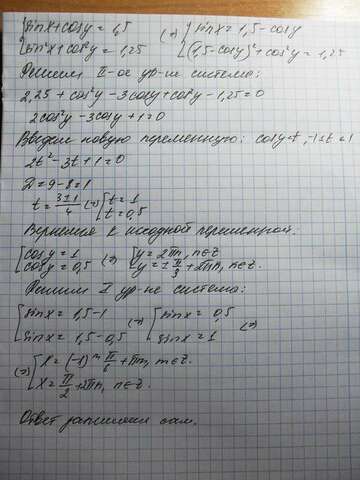 {sinx+cosy=1,5 (=) {sinx=1,5-cosy
{sin²x+cos²y=1,25 {(1,5-cosy)²+cos²y=1,25
Решим II-ое ур-ие системы:
2,25+cos²y-3cosy+cos²y-1,25=0
2cos²y-3cosy+1=0
Введём новую переменную: cosy=t, -1≤t≤1
2t²-3t+1=0
D=9-8=1
t=(3±1)/4 (=) [t=1
[t=0,5
Вернёмся к исходной переменной:
[cosy=1 (=) [y=2πn, n∈Z
[cosy=0,5 [y=±π/3+2πn, n∈Z.
Решим I ур-ие системы:
[sinx=1,5-1 (=) [sinx=0,5 (=)
[sinx=1,5-0,5 [sinx=1
(=) [x=(-1)ᵐ π/6+πm, m∈Z.
[x=π/2+2πn, n∈Z.
Ответ запишешь сам.